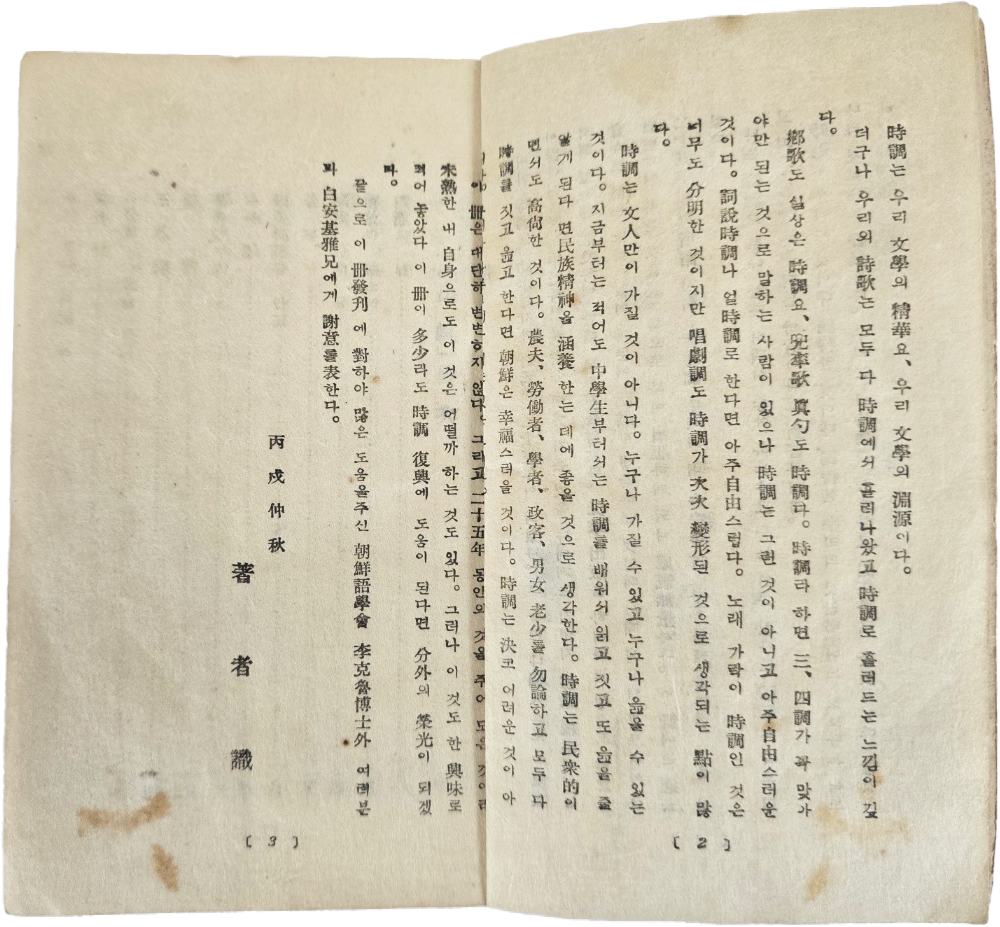 時調는 우리 文學의 精華요、우리 文學의 淵源이다。
더구나 우리의 詩歌는 모두 다 時調에서 흘러나왔고 時調로 흘러드는 느낌이 깊
다。
鄕歌도 실상은 時調요、兜率歌 眞勺도 時調다。時調라 하면 三、四調가 꼭 맞아
야만 된는 것으로 말하는 사람이 있으나 時調는 그런 것이 아니고 아주自由스러운
것이다。詞說時調나 얼時調로 한다면 아주自由스럽다。노래 가락이 時調인 것은
너무도 分明한 것이지만 唱劇調도 時調가 次次 變形된 것으로 생각되는 點이 많
다。
時調는 文人만이 가질 것이 아니다。누구나 가질 수 있고 누구나 읊을 수 있는
것이다。지금부터는 적어도 中學生부터서는 時調를 배워서 읽고 짓고 도 읊을 줄
알게 된다 면民族精神을 涵養 한는 데에 좋을 것으로 생각한다。時調는 民衆的이
면서도 高尙한 것이다。農夫、勞働者、學者、政客、男女 老少를 勿論하고 모두 다
時調를 짓고 읊고 한다면 朝鮮은 幸福스러울 것이다。時調는 決코 어려운 것이 아
〔 2 〕
이 冊은 대단하 변변ㅎ지 않다。그리고 二十五年 동안의 것을 주어 모은 것이라
未熟한 내 自身으로도 이 것은 어떨까 하는 것도 있다。그러나 이 것도 한 興味로
적어 놓았다 이 冊이 多少라도 時調 復興에 도움이 된다면 分外의 榮光이 되겠
다。
끝으로 이 冊發刊 에 對하야 많은 도움을주신 朝鮮語學會 李克魯博士外 여러분
과 白安基雅兄에게 謝意를表한다。
丙戌仲秋
著者識
〔 3 〕